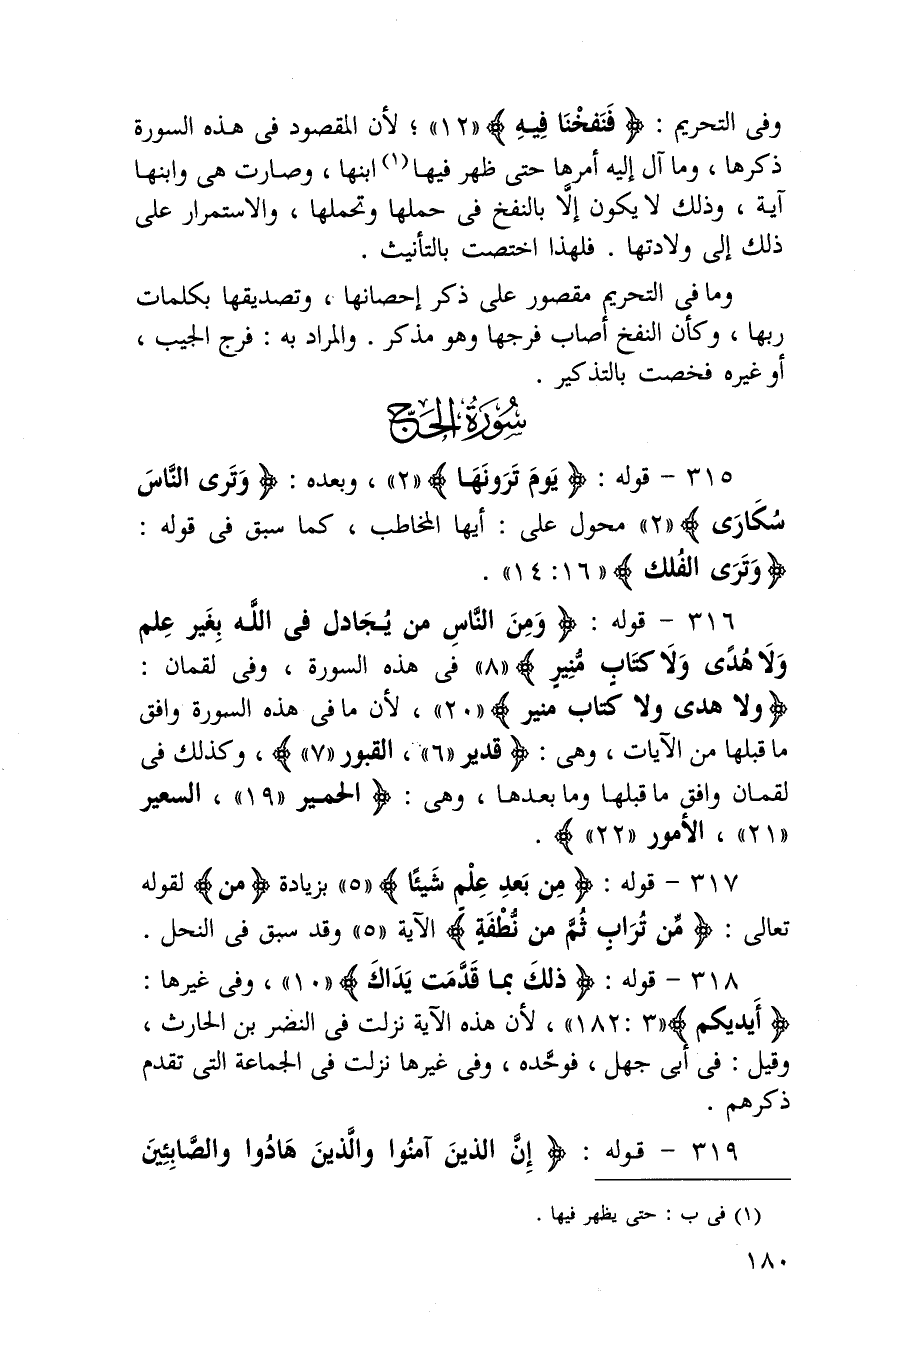 وفى التحريم : ﴿ فَنَفخْنَا فِيهِ ﴾ «١٢» ؛ لأن المقصود فى هذه السورة
ذكرها ، وما آل إليه أمرها حتى ظهر فيها(١) ابنها ، وصارت هى وابنها
آية ، وذلك لا يكون إلَّا بالنفخ فى حملها وتحملها ، والاستمرار على
ذلك إلى ولادتها . فلهذا اختصت بالتأنيث .
وما فى التحريم مقصور على ذكر إحصانها ، وتصديقها بكلمات
ربها ، وكأن النفخ أصاب فرجها وهو مذكر . والمراد به : فرج الجيب ،
أو غيره فخصت بالتذكير .
سُورَةُ الحَجّ
٣١٥ – قوله : ﴿ يَومَ تَرَونَهَا ﴾ «٢» ، وبعده : ﴿ وَتَرى النَّاسَ
سُكَارَى ﴾ «٢» محول على : أيها المخاطب ، كما سبق فى قوله :
﴿ وَتَرَى الفُلك ﴾ «١٦: ١٤» .
٣١٦ – قوله : ﴿ وَمِنَ النَّاسِ من يُجَادل فى اللَّه بِغَير عِلم
وَلَا هُدًى وَلَا كتَابٍ مُّنِيرٍ ﴾ «٨» فى هذه السورة ، وفى لقمان :
﴿ ولا هدى ولا كتاب منير ﴾ «٢٠» ، لأن ما فى هذه السورة وافق
ما قبلها من الآيات ، وهى : ﴿ قدير «٦» ، القبور «٧» ﴾ ، وكذلك فى
لقمان وافق ما قبلها وما بعدها ، وهى : ﴿ الحمير «١٩» ، السعير
«٢١» ، الأمور «٢٢» ﴾ .
٣١٧ – قوله : ﴿ مِن بَعدِ عِلْمٍ شَيئًا ﴾ «٥» بزيادة ﴿ من ﴾ لقوله
تعالى : ﴿ مِّن تُرَابٍ ثُمَّ من نُّطْفَةٍ ﴾ الآية «٥» وقد سبق فى النحل .
٣١٨ – قوله : ﴿ ذلكَ بما قَدَّمَت يَدَاكَ ﴾ «١٠» ، وفى غيرها :
﴿ أَيديكم ﴾ «٣ :١٨٢» ، لأن هذه الآية نزلت فى النضر بن الحارث ،
وقيل : فى أبى جهل ، فوحَّده ، وفى غيرها نزلت فى الجماعة التى تقدم
ذكرهم .
٣١٩ – قوله : ﴿ إِنَّ الذينَ آمنُوا والَّذينَ هَادُوا والصَّابِئِينَ
(١) فى ب : حتى يظهر فيها .
١٨٠